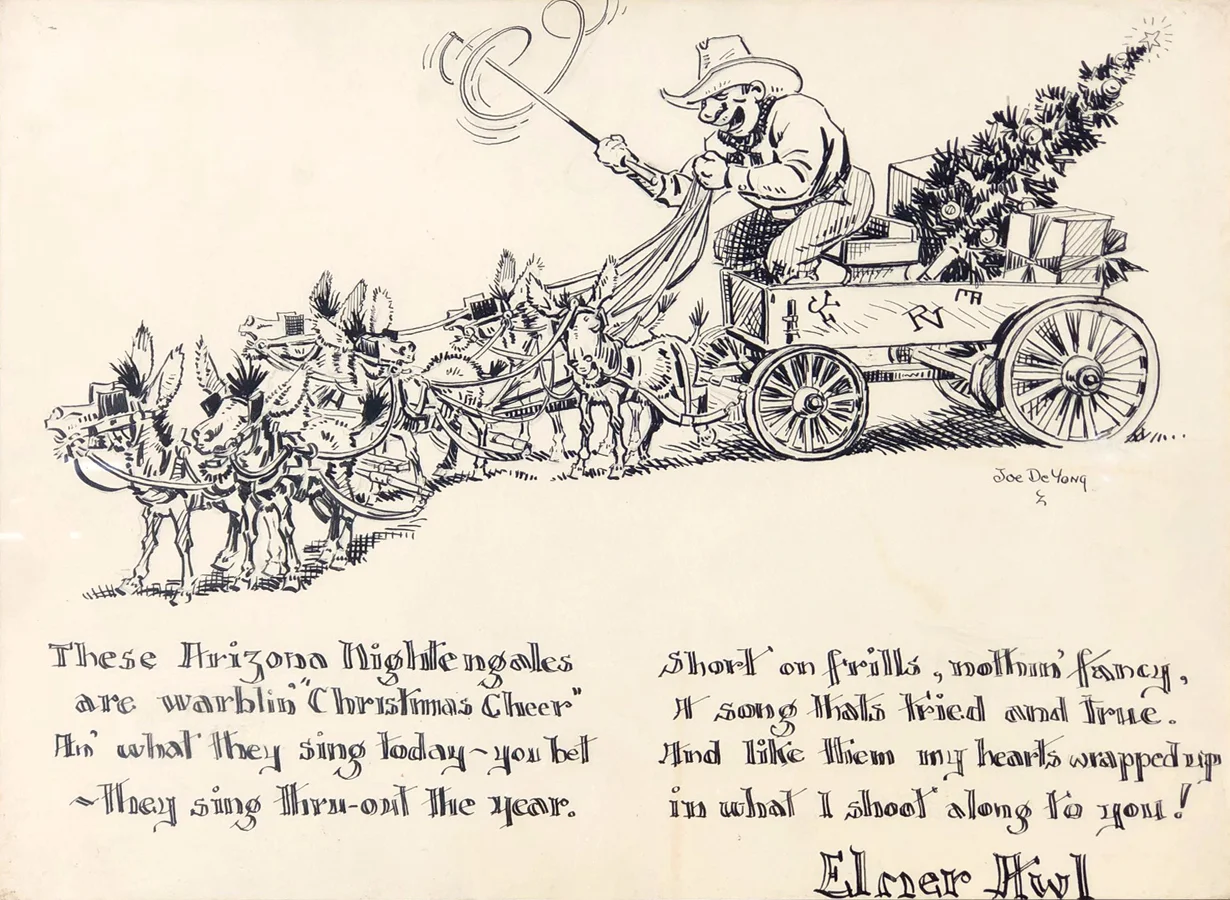 Joe De Yong
These Arizona Nightengales
are warblin' "Christmas Cheer"
An' what they sing today~you bet
~they sing thru-out the year.
Short on frills, nothin' fancy,
A song thats tried and true.
And like them my hearts wrapped up
in what I shoot along to you!
Elmer Awl